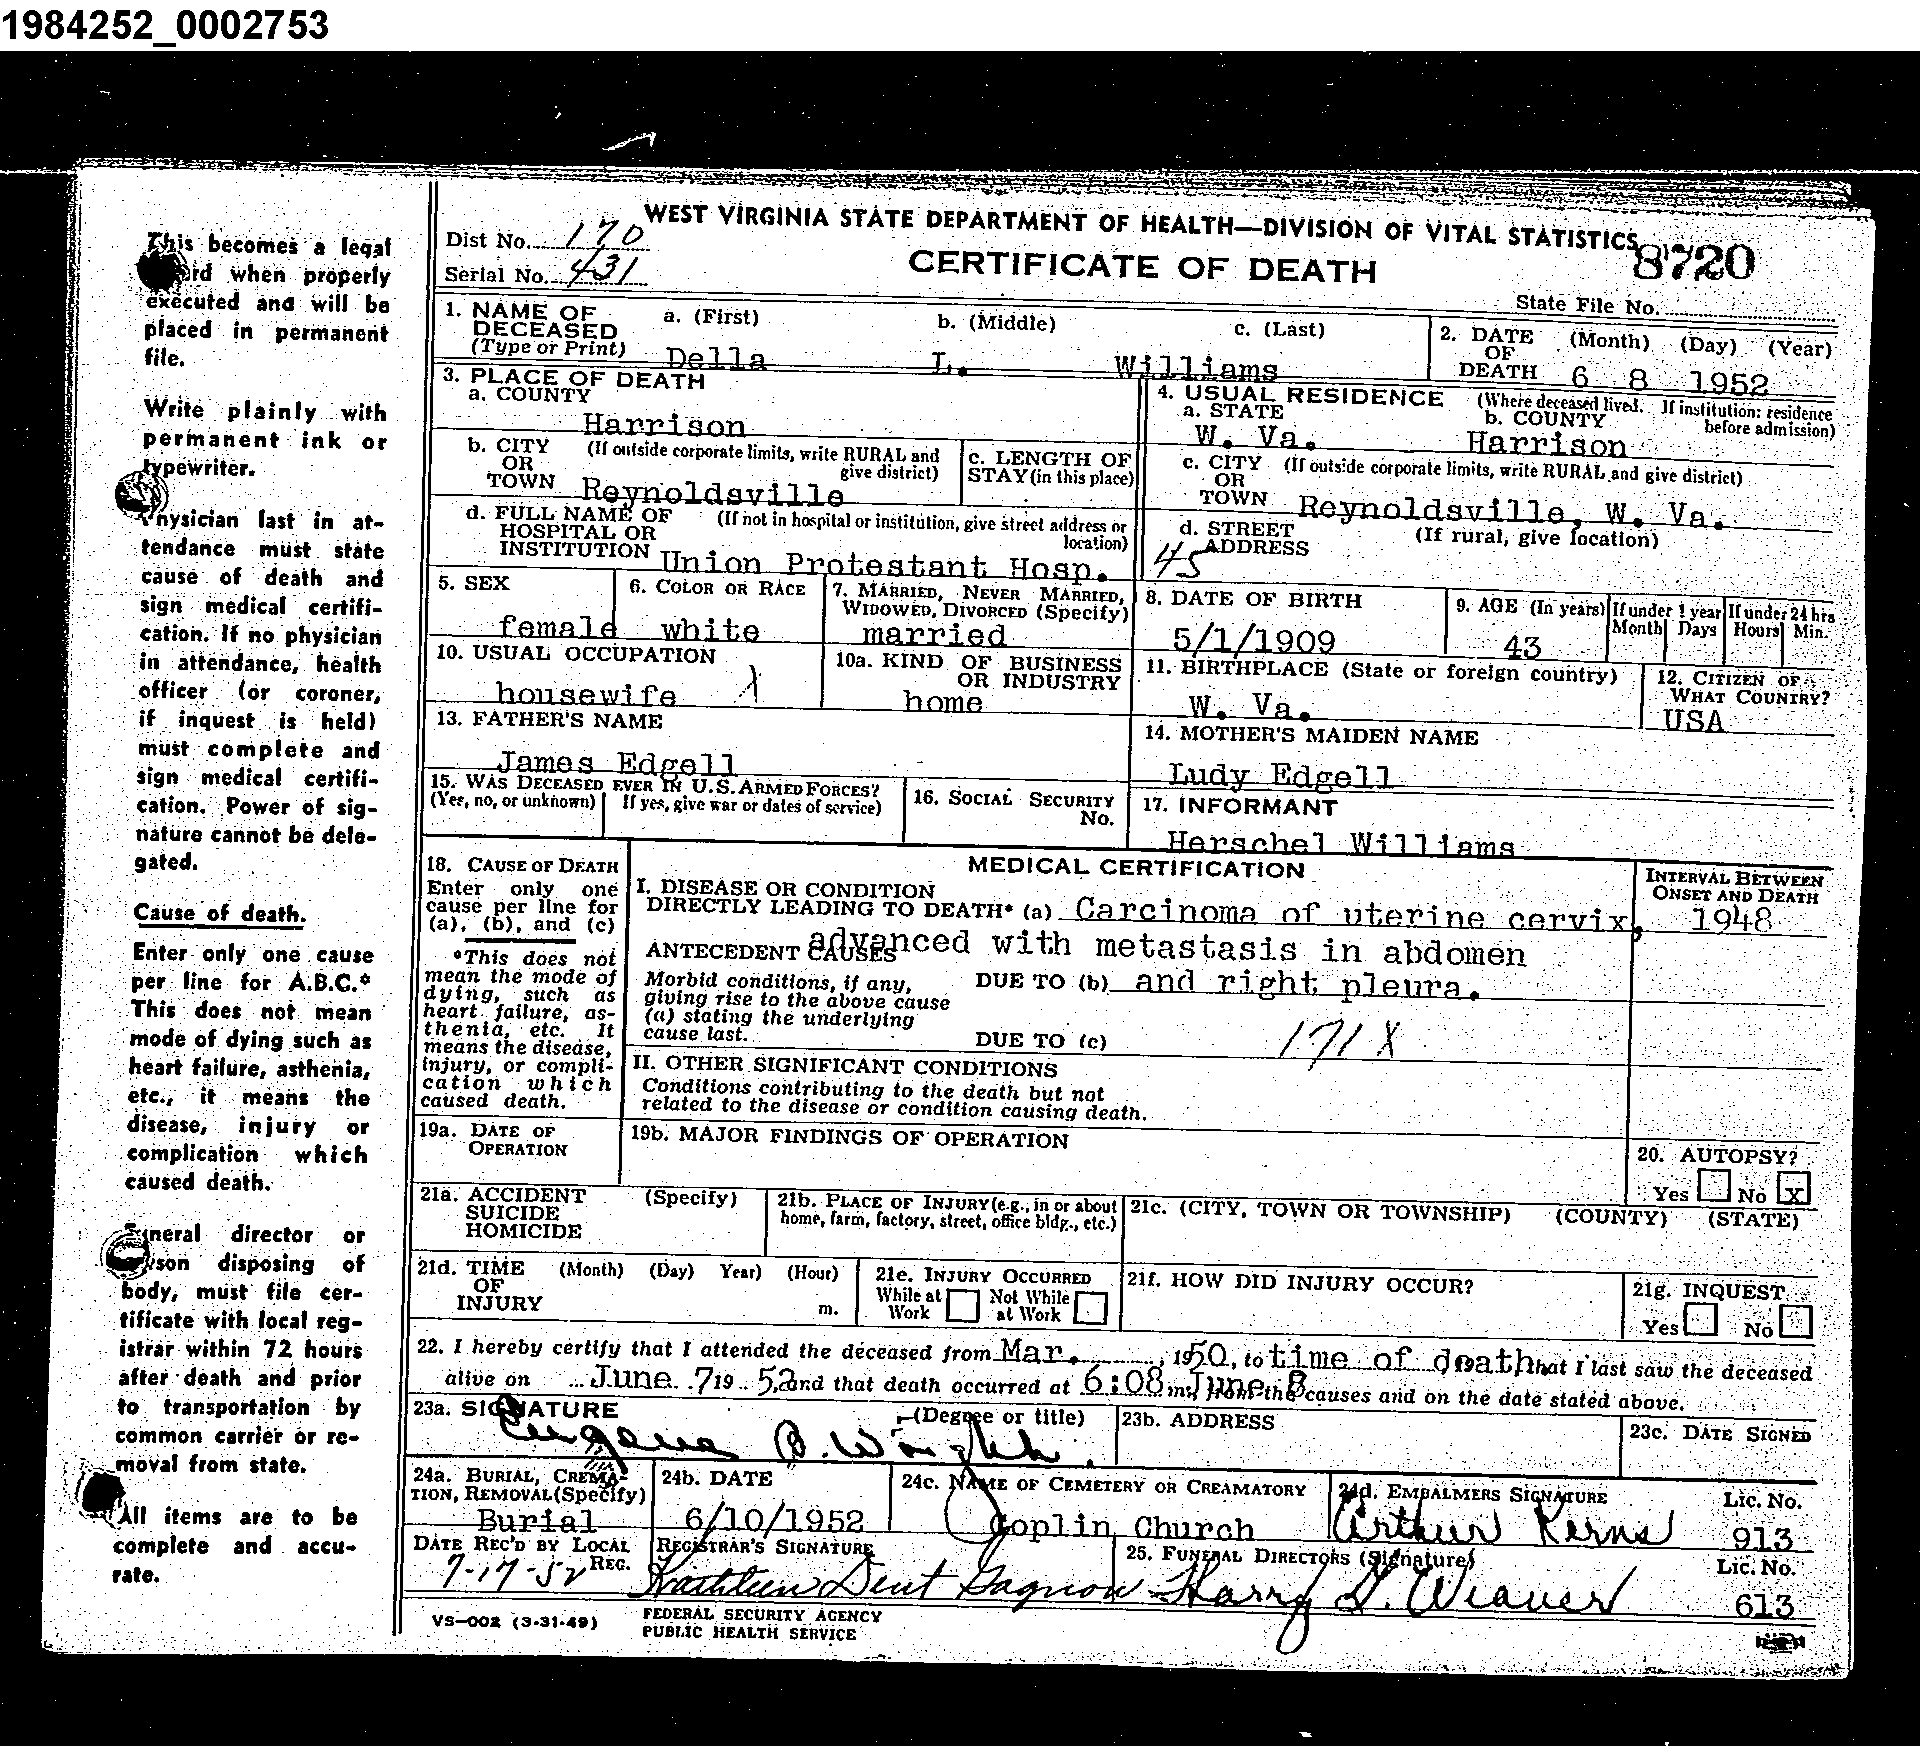 1984252_0002753
This becomes a legal
when properly
executed and will be
placed in permanent
file.
Write plainly with
permanent ink or
typewriter.
Physician last in at-
tendance must state
cause of death and
sign medical certifi-
cation. If no physician
in attendance, health
officer (or coroner,
if inquest is held)
must complete and
sign medical certifi-
cation. Power of sig-
nature cannot be dele-
gated.
Cause of death.
Enter only one cause
per line for A.B.C.*
This does not mean
mode of dying such as
heart failure, asthenia,
etc., it means the
disease, injury or
complication which
caused death.
Funeral director or
person disposing of
body, must file cer-
tificate with local reg-
istrar within 72 hours
after death and prior
to transportation by
common carrier or re-
moval from state.
All items are to be
complete and accu-
rate.
WEST VIRGINIA STATE DEPARTMENT OF HEALTH—DIVISION OF VITAL STATISTICS
Dist No. 170
CERTIFICATE OF DEATH
8720
Serial No. 431
State File No.
1. NAME OF DECEASED (Type or Print) a. (First) b. (Middle) c. (Last)
Della L. Williams
2. DATE OF DEATH (Month) (Day) (Year)
6 8 1952
3. PLACE OF DEATH
a. COUNTY
Harrison
b. CITY OR TOWN (If outside corporate limits, write RURAL and give district)
Reynoldsville
c. LENGTH OF STAY (in this place)
d. FULL NAME OF HOSPITAL OR INSTITUTION (If not in hospital or institution, give street address or location)
Union Protestant Hosp.
4. USUAL RESIDENCE (Where deceased lived. If institution: residence before admission)
a. STATE b. COUNTY
W. Va. Harrison
c. CITY OR TOWN (If outside corporate limits, write RURAL and give district)
Reynoldsville, W. Va.
d. STREET ADDRESS (If rural, give location)
45
5. SEX
female
6. COLOR OR RACE
white
7. MARRIED, NEVER MARRIED, WIDOWED, DIVORCED (Specify)
married
8. DATE OF BIRTH
5/1/1909
9. AGE (In years) If under 1 year Month Days If under 24 hrs Hours Min.
43
10. USUAL OCCUPATION
housewife
10a. KIND OF BUSINESS OR INDUSTRY
home
11. BIRTHPLACE (State or foreign country)
W. Va.
12. CITIZEN OF WHAT COUNTRY?
USA
13. FATHER'S NAME
James Edgell
14. MOTHER'S MAIDEN NAME
Ludy Edgell
15. WAS DECEASED EVER IN U.S. ARMED FORCES?
(Yes, no, or unknown) If yes, give war or dates of service)
16. SOCIAL SECURITY No.
17. INFORMANT
Herschel Williams
18. CAUSE OF DEATH
Enter only one
cause per line for
(a), (b), and (c)
*This does not
mean the mode of
dying, such as
heart failure, as-
thenia, etc. It
means the disease,
injury, or compli-
cation which
caused death.
MEDICAL CERTIFICATION
I. DISEASE OR CONDITION
DIRECTLY LEADING TO DEATH* (a) Carcinoma of uterine cervix,
ANTECEDENT CAUSES advanced with metastasis in abdomen
Morbid conditions, if any,
giving rise to the above cause
(a) stating the underlying
cause last.
DUE TO (b) and right pleura.
DUE TO (c)
171X
INTERVAL BETWEEN
ONSET AND DEATH
1948
II. OTHER SIGNIFICANT CONDITIONS
Conditions contributing to the death but not
related to the disease or condition causing death.
19a. DATE OF OPERATION
19b. MAJOR FINDINGS OF OPERATION
20. AUTOPSY?
Yes No X
21a. ACCIDENT SUICIDE HOMICIDE (Specify)
21b. PLACE OF INJURY (e.g., in or about
home, farm, factory, street, office bldg., etc.)
21c. (CITY, TOWN OR TOWNSHIP) (COUNTY) (STATE)
21d. TIME OF INJURY (Month) (Day) Year) (Hour) m.
21e. INJURY OCCURRED
While at Work Not While at Work
21f. HOW DID INJURY OCCUR?
21g. INQUEST
Yes No
22. I hereby certify that I attended the deceased from Mar. , 1950, to time of death, that I last saw the deceased
alive on June 7 19 52, and that death occurred at 6:08 m., June 8 from the causes and on the date stated above.
23a. SIGNATURE (Degree or title)
Eugene B. Wright
23b. ADDRESS
23c. DATE SIGNED
24a. BURIAL, CREMA-
TION, REMOVAL (Specify)
Burial
24b. DATE
6/10/1952
24c. NAME OF CEMETERY OR CREAMATORY
Coplin Church
24d. EMBALMERS SIGNATURE Lic. No.
Arthur Kerns 913
DATE REC'D BY LOCAL REG.
7-17-52
REGISTRAR'S SIGNATURE
Kathleen Dent Gagnon
25. FUNERAL DIRECTORS (Signature) Lic. No.
Harry G. Weaver 613
VS—002 (3-31-49)
FEDERAL SECURITY AGENCY
PUBLIC HEALTH SERVICE